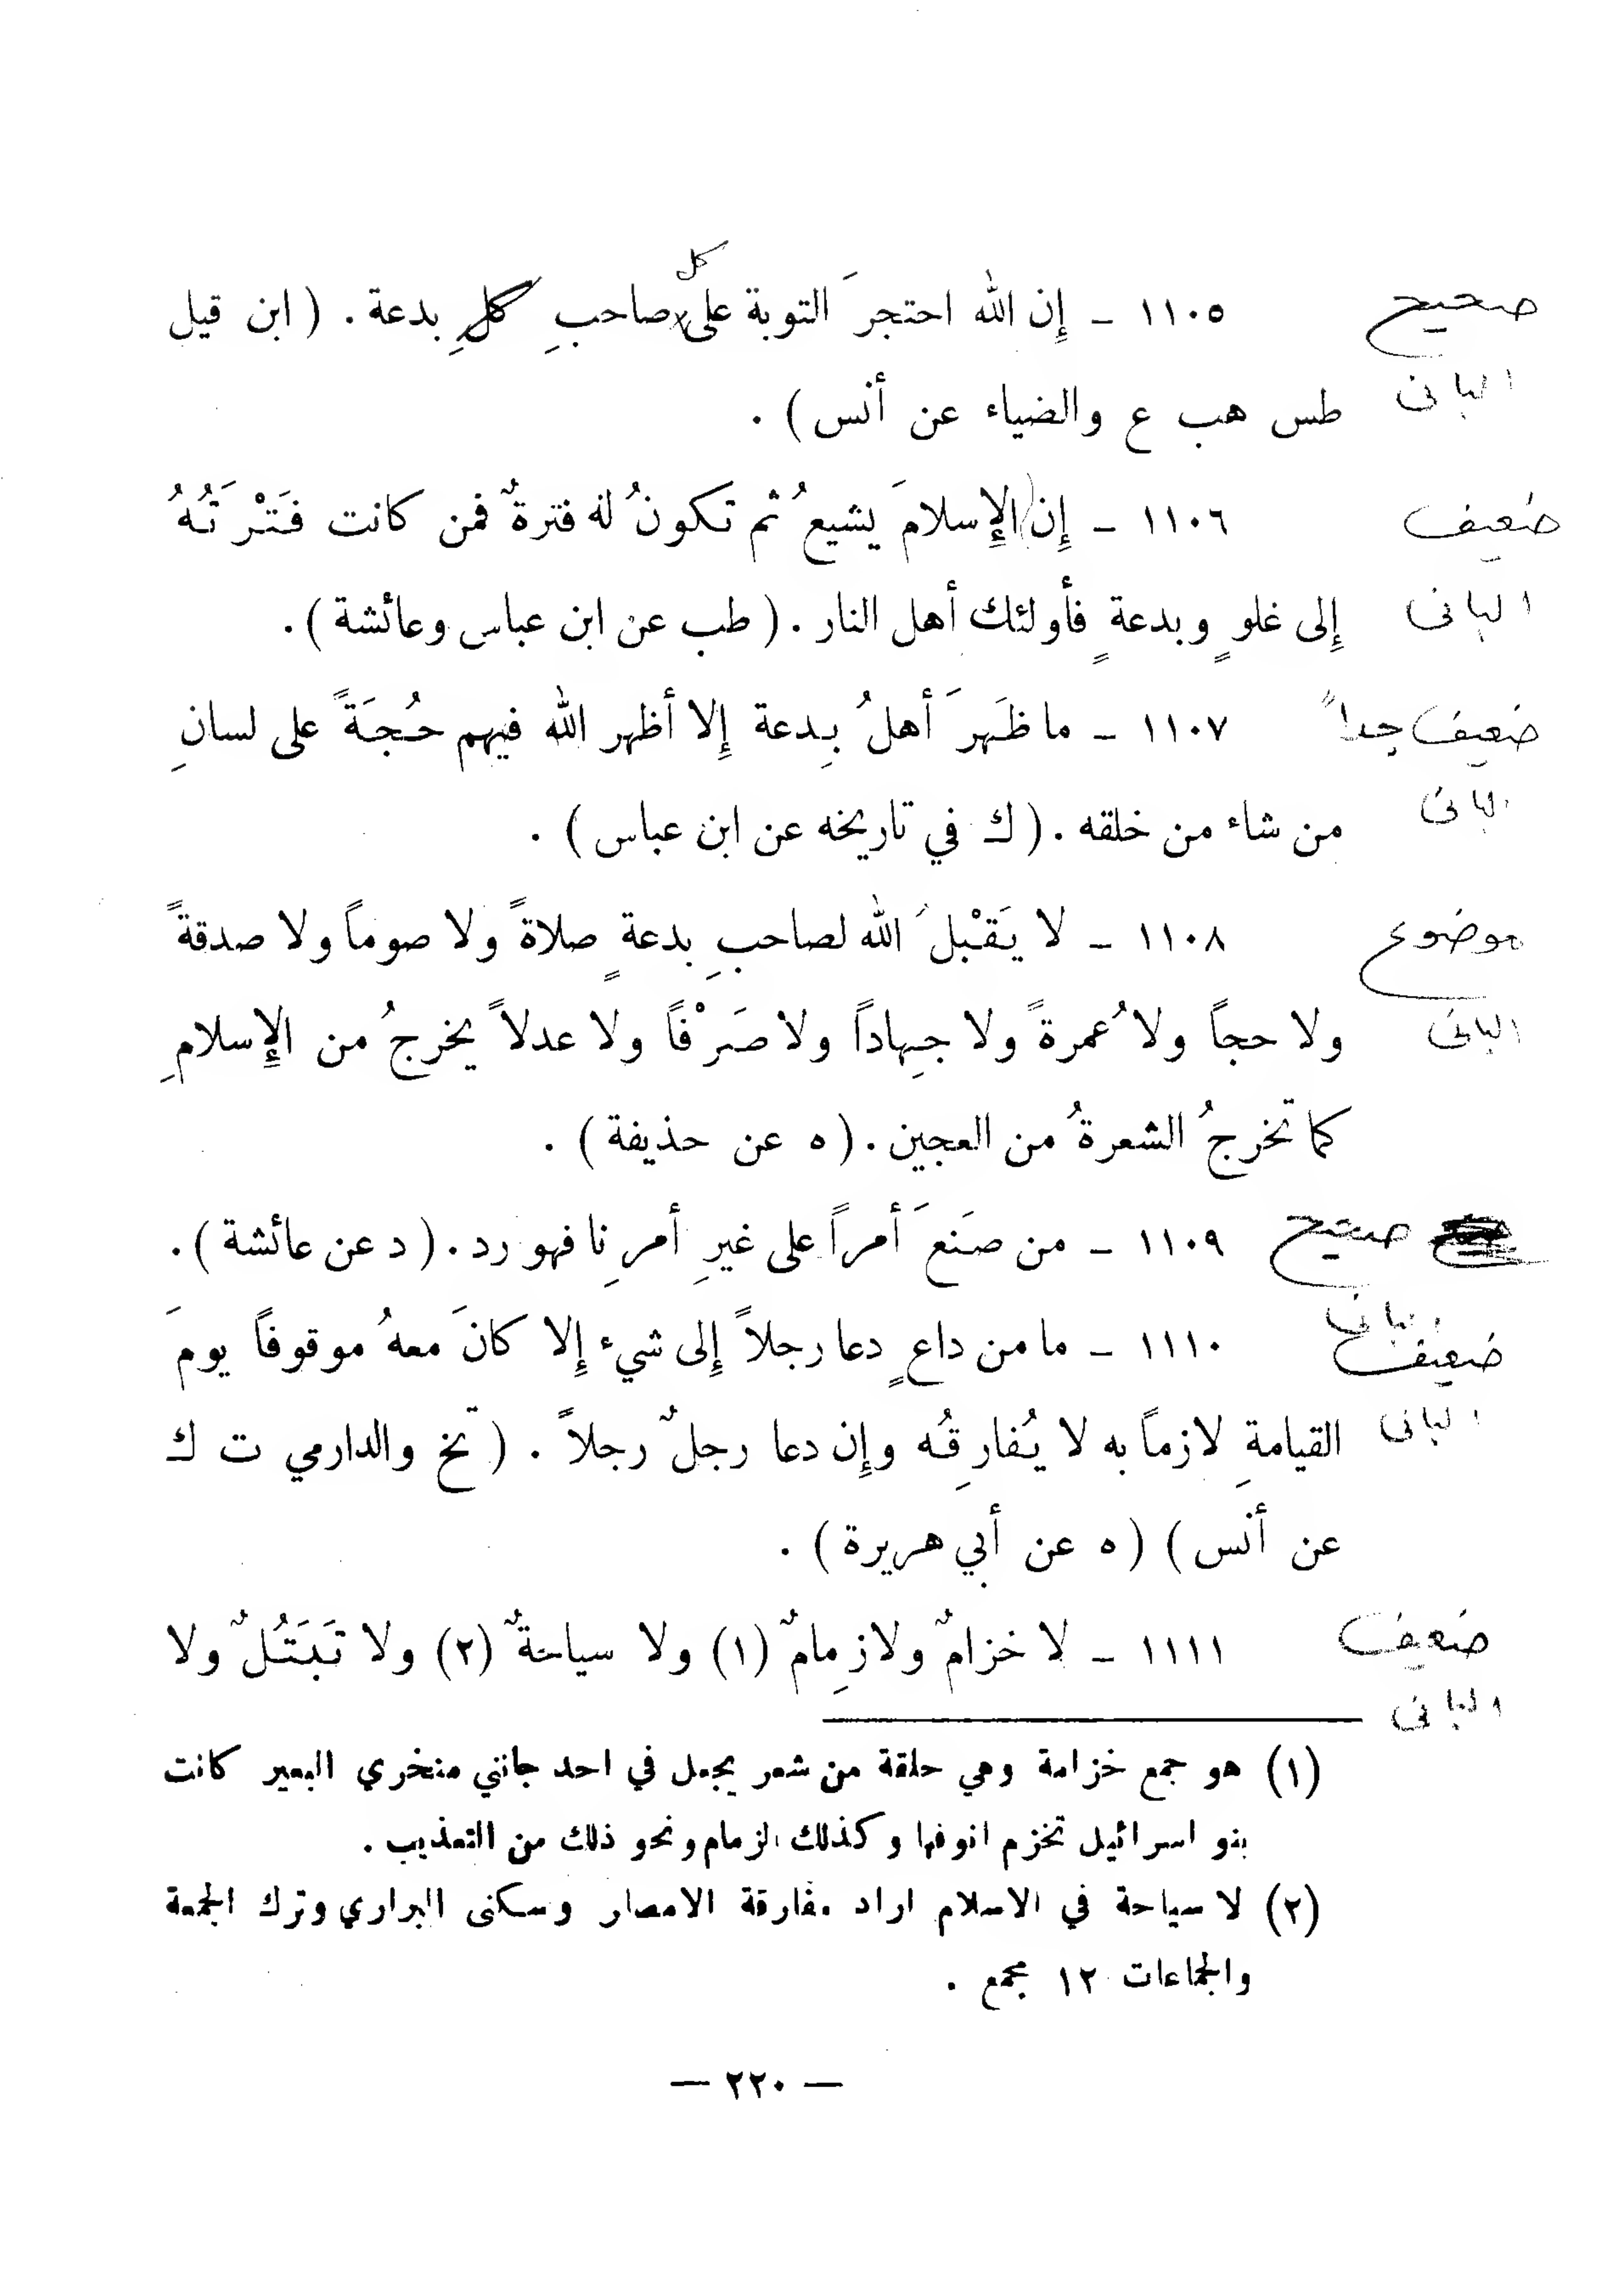 كل
صحيح ١١٠٥ ـ إِن الله احتجرَ التوبة على صاحبِ كلِ بدعة . ( ابن قيل
البانى طس هب ع والضياء عن أنس ) .
ضعيف ١١٠٦ ـ إِن الإِسلامَ يشيعُ ثم تكونُ له فترةٌ فمن كانت فَتْرَتُهُ
البانى إِلى غلوٍ وبدعةٍ فأولئك أهل النار . ( طب عن ابن عباس وعائشة ) .
ضعيف جداً ١١٠٧ ـ ما ظَهرَ أهلُ بِدعة إِلا أظهر الله فيهم حُجَةً على لسانِ
البانى من شاء من خلقه . ( ك في تاريخه عن ابن عباس ) .
موضوع ١١٠٨ ـ لا يَقْبلُ الله لصاحبِ بدعةٍ صلاةً ولا صوماً ولا صدقةً
البانى ولا حجاً ولا عُمرةً ولا جِهاداً ولا صَرْفاً ولا عدلاً يخرجُ من الإِسلامِ
كما تخرجُ الشعرةُ من العجين . ( ه عن حذيفة ) .
صحيح ١١٠٩ ـ من صنَعَ أمراً على غيرِ أمرِنا فهو رد . ( د عن عائشة ) .
البانى
ضعيف ١١١٠ ـ ما من داعٍ دعا رجلاً إِلى شيء إِلا كانَ معهُ موقوفاً يومَ
البانى القيامةِ لازماً به لا يُفارِقُه وإِن دعا رجلٌ رجلاً . ( تخ والدارمي ت ك
عن أنس ) ( ه عن أبي هريرة ) .
ضعيف ١١١١ ـ لا خزامٌ ولا زِمامٌ (١) ولا سياحةٌ (٢) ولا تَبَتُلٌ ولا
البانى
(١) هو جمع خزامة وهي حلقة من شعر يجعل في احد جانبي منخري البعير كانت
بنو اسرائيل تخزم انوفها وكذلك الزمام ونحو ذلك من التعذيب .
(٢) لا سياحة في الاسلام اراد مفارقة الامصار وسكنى البراري وترك الجمعة
والجماعات ١٢ مجمع .
— ٢٢٠ —